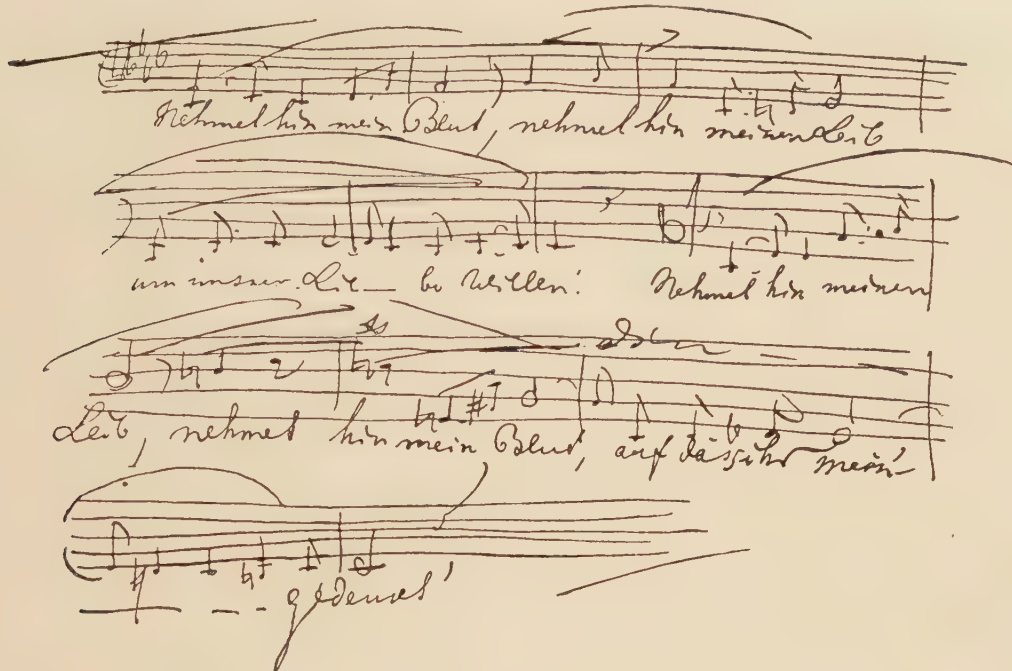 Nehmet hin mein Blut, nehmet hin meinen Leib
um unsrer Lie– be willen!   Nehmet hin meinen
Leib, nehmet hin mein Blut, auf dass ihr mein'
gedenket'